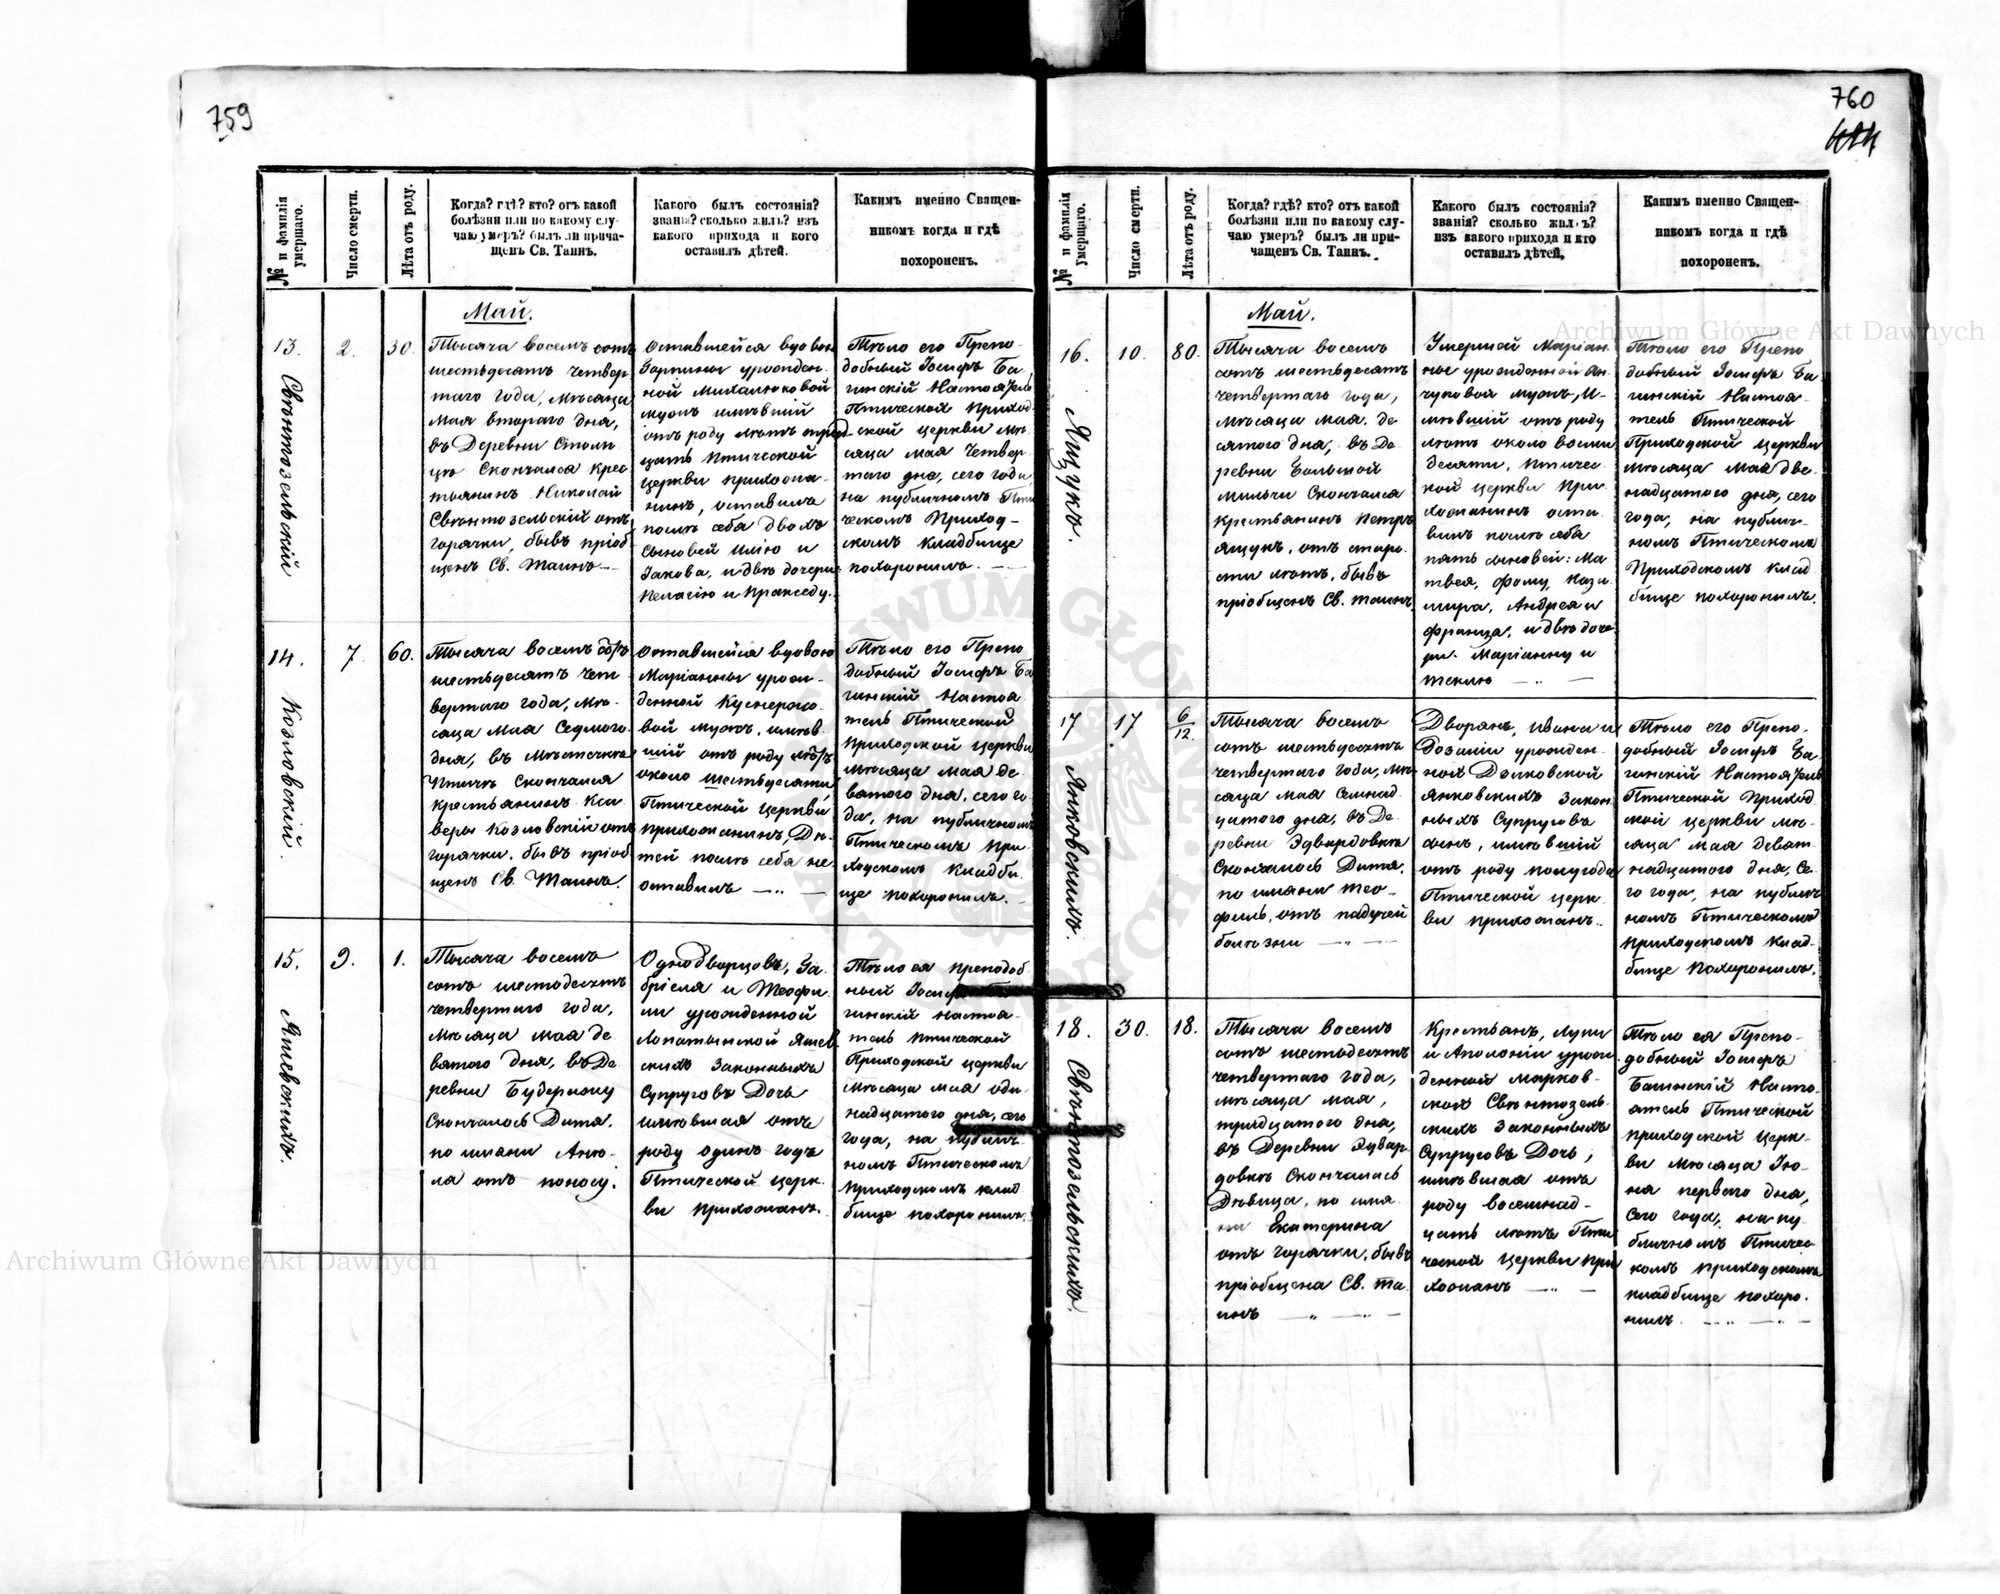 759
№ и фамилія умершаго.
Число смерти.
Лѣта отъ роду.
Когда? гдѣ? кто? отъ какой
болѣзни или по какому слу-
чаю умеръ? былъ ли прича-
щенъ Св. Таинъ.
Какого былъ состоянія?
званія? сколько жилъ? изъ
какого прихода и кого
оставилъ дѣтей.
Какимъ именно Священ-
никомъ когда и гдѣ
похороненъ.
Май.
13.
Свѣнтозельскій
2.
30.
Тысяча восемъ сотъ
шестьдесятъ четвер
таго года, мѣсяца
мая втораго дня,
въ Деревни Столп
цѣ Скончался крес
тьянинъ Николай
Свѣнтозельскій отъ
горячки, бывъ пріоб
щенъ Св. Таинъ
Оставшейся вдовою
урожден-
ной Михалюковой
мужъ имѣвшій
отъ роду лѣтъ трид-
цать Птической
церкви прихожа-
нинъ, оставилъ
послѣ себя двохъ
сыновей Илію и
Іакова, и двѣ дочери
Пелагію и Пракседу.
Тѣло его Препо-
добный Іосифъ Ба-
гинскій Настоятель
Птической Приход
ской церкви мѣ-
сяца мая Четвер
таго дня, сего года
на публичномъ Пти
ческомъ Приход-
скомъ кладбище
похоронилъ.
14.
Козловскій.
7.
60.
Тысяча восемъ сотъ
шестьдесятъ чет
вертаго года, мѣ-
сяца Мая Седмого
дня, въ Мѣстечкѣ
Птичѣ Скончался
крестьянинъ Кса
веры Козловскій отъ
горячки, бывъ пріоб
щенъ Св. Таинъ.
Оставшейся вдовою
Маріанны урож-
денной
вой мужъ, имѣв
шій отъ роду лѣтъ
около шестьдесяти,
Птической церкви
прихожанинъ, Дѣ-
тей послѣ себя не
оставилъ — „ —
Тѣло его Препо
добный Іосифъ Ба
гинскій Настоя
тель Птической
приходской церкви
мѣсяца мая де-
вятого дня, сего го-
да, на публичномъ
Птическомъ При-
ходскомъ Кладби-
ще похоронилъ.
15.
Яшевскихъ.
9.
1.
Тысяча восемъ
сотъ шестьдесятъ
четвертаго года,
мѣсяца мая де
вятого дня, въ Де
ревни Будермоку
Скончалось Дитя,
по имяни Анѣ-
ля отъ поносу.
Однодворцовъ, Га-
брiеля и Теофи-
ли урожденной
Лопатынской Яшев
скихъ Законныхъ
Супруговъ Дочь
имѣвшая отъ
роду одинъ годъ
Птической церк
ви прихожанъ.
Тѣло ея преподоб
ный Іосифъ
гинскій настоя-
тель птической
Приходской церкви
мѣсяца мая оди-
надцатого дня, сего
года, на публич
номъ Птическомъ
приходскомъ клад
бище похоронилъ.
760
№ и фамилія умершаго.
Число смерти.
Лѣта отъ роду.
Когда? гдѣ? кто? отъ какой
болѣзни или по какому слу-
чаю умеръ? былъ ли при-
чащенъ Св. Таинъ.
Какого былъ состоянія?
званія? сколько жилъ?
изъ какого прихода и кто
оставилъ дѣтей.
Какимъ именно Священ-
никомъ когда и гдѣ
похороненъ.
Май.
16.
Ящукъ.
10.
80.
Тысяча восемъ
сотъ шестьдесятъ
четвертаго года,
мѣсяца мая. де-
сятого дня, въ Де
ревни Большой
Мильчи Скончался
крестьянинъ Петръ
Ящукъ, отъ старо-
сти лѣтъ, бывъ
пріобщенъ Св. таинъ
Умершей Маріан-
ны урожденной Ян
чуковой мужъ, И-
мѣвшій отъ роду
лѣтъ около восми
десяти, птичес-
кой церкви При-
хожанинъ оста-
вилъ послѣ себя
пять сыновей: Ма
твея, Фому, Кази-
мира, Андрея и
Франца, и двѣ доче
ри. Маріанну и
Теклю — „ —
Тѣло его Препо
добный Іосифъ Ба
гинскій Настоя-
тель Птической
Приходской церкви
мѣсяца мая две-
надцатого дня, сего
года, на публич-
номъ Птическомъ
Приходскомъ клад
бище похоронилъ.
17
Янковскихъ.
17
6/12.
Тысяча восемъ
сотъ шестьдесятъ
четвертаго года, мѣ
сяца мая Семнад
цатого дня, въ Де-
ревни Эдвардовкѣ
Скончалось Дитя,
по имяни Тео-
филь, отъ падучей
болѣзни — „ —
Дворянъ, Ивана и
Розаліи урожден-
ной
Янковскихъ закон
ныхъ Супруговъ
сынъ, имѣвшій
отъ роду полугода
Птической церк
ви прихожанъ.
Тѣло его Препо-
добный Іосифъ Ба
гинскій Настоятель
Птической Приход
ской церкви мѣ-
сяца мая девят-
надцатого дня, Се-
го года, на публич
номъ Птическомъ
приходскомъ клад-
бище похоронилъ.
18.
Свѣнтозельскихъ.
30.
18.
Тысяча восемъ
сотъ шестьдесятъ
четвертаго года,
мѣсяца мая,
тридцатого дня,
въ Деревни Эдвар
довкѣ Скончалась
Дѣвица, по имя
ни Екатерина
отъ горячки, бывъ
пріобщена Св. та
инъ — „ —
Крестьянъ, Лупи
и Аполоніи урож-
денной Марков-
ской Свѣнтозель
скихъ Законныхъ
Супруговъ Дочь,
имѣвшая отъ
роду восемнад-
цать лѣтъ Пти
ческой церкви при
хожанъ — „ —
Тѣло ея Препо-
добный Іосифъ
Багинскій Насто-
ятель Птической
приходской церк-
ви мѣсяца Ію-
ня первого дня,
сего года, на пу-
бличномъ Птичес
комъ приходскомъ
кладбище похоро-
нилъ. — „ —
Archiwum Główne Akt Dawnych
Archiwum Główne Akt Dawnych